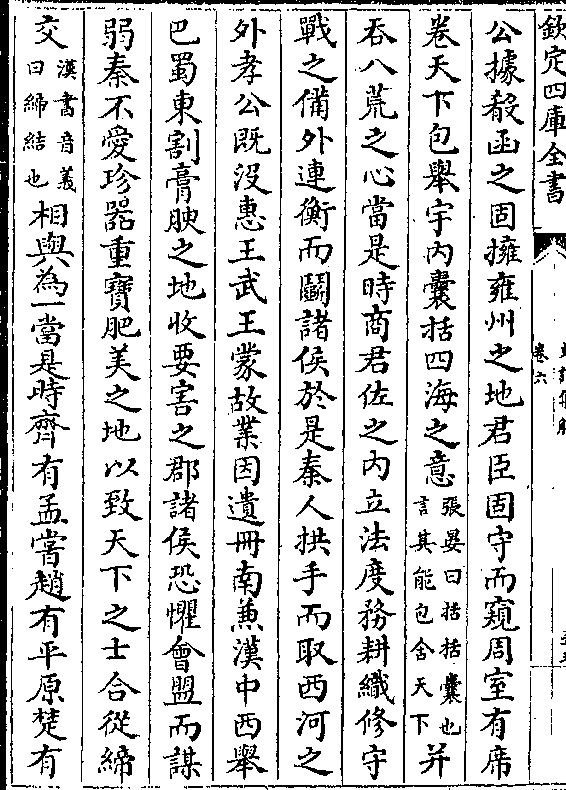 欽定四庫全書
卷六
公據殽函之固擁雍州之地君臣固守而窺周室有席
卷天下包舉宇内囊括四海之意張晏曰括括囊也言其能包含天下并
吞八荒之心當是時商君佐之内立法度務耕織修守
戰之備外連衡而鬭諸侯於是秦人拱手而取西河之
外孝公既没惠王武王蒙故業因遺冊南兼漢中西舉
巴蜀東割膏腴之地收要害之郡諸侯恐懼會盟而謀
弱秦不愛珍器重寶肥美之地以致天下之士合從締
交漢書音義曰締結也相與為一當是時齊有孟嘗趙有平原楚有